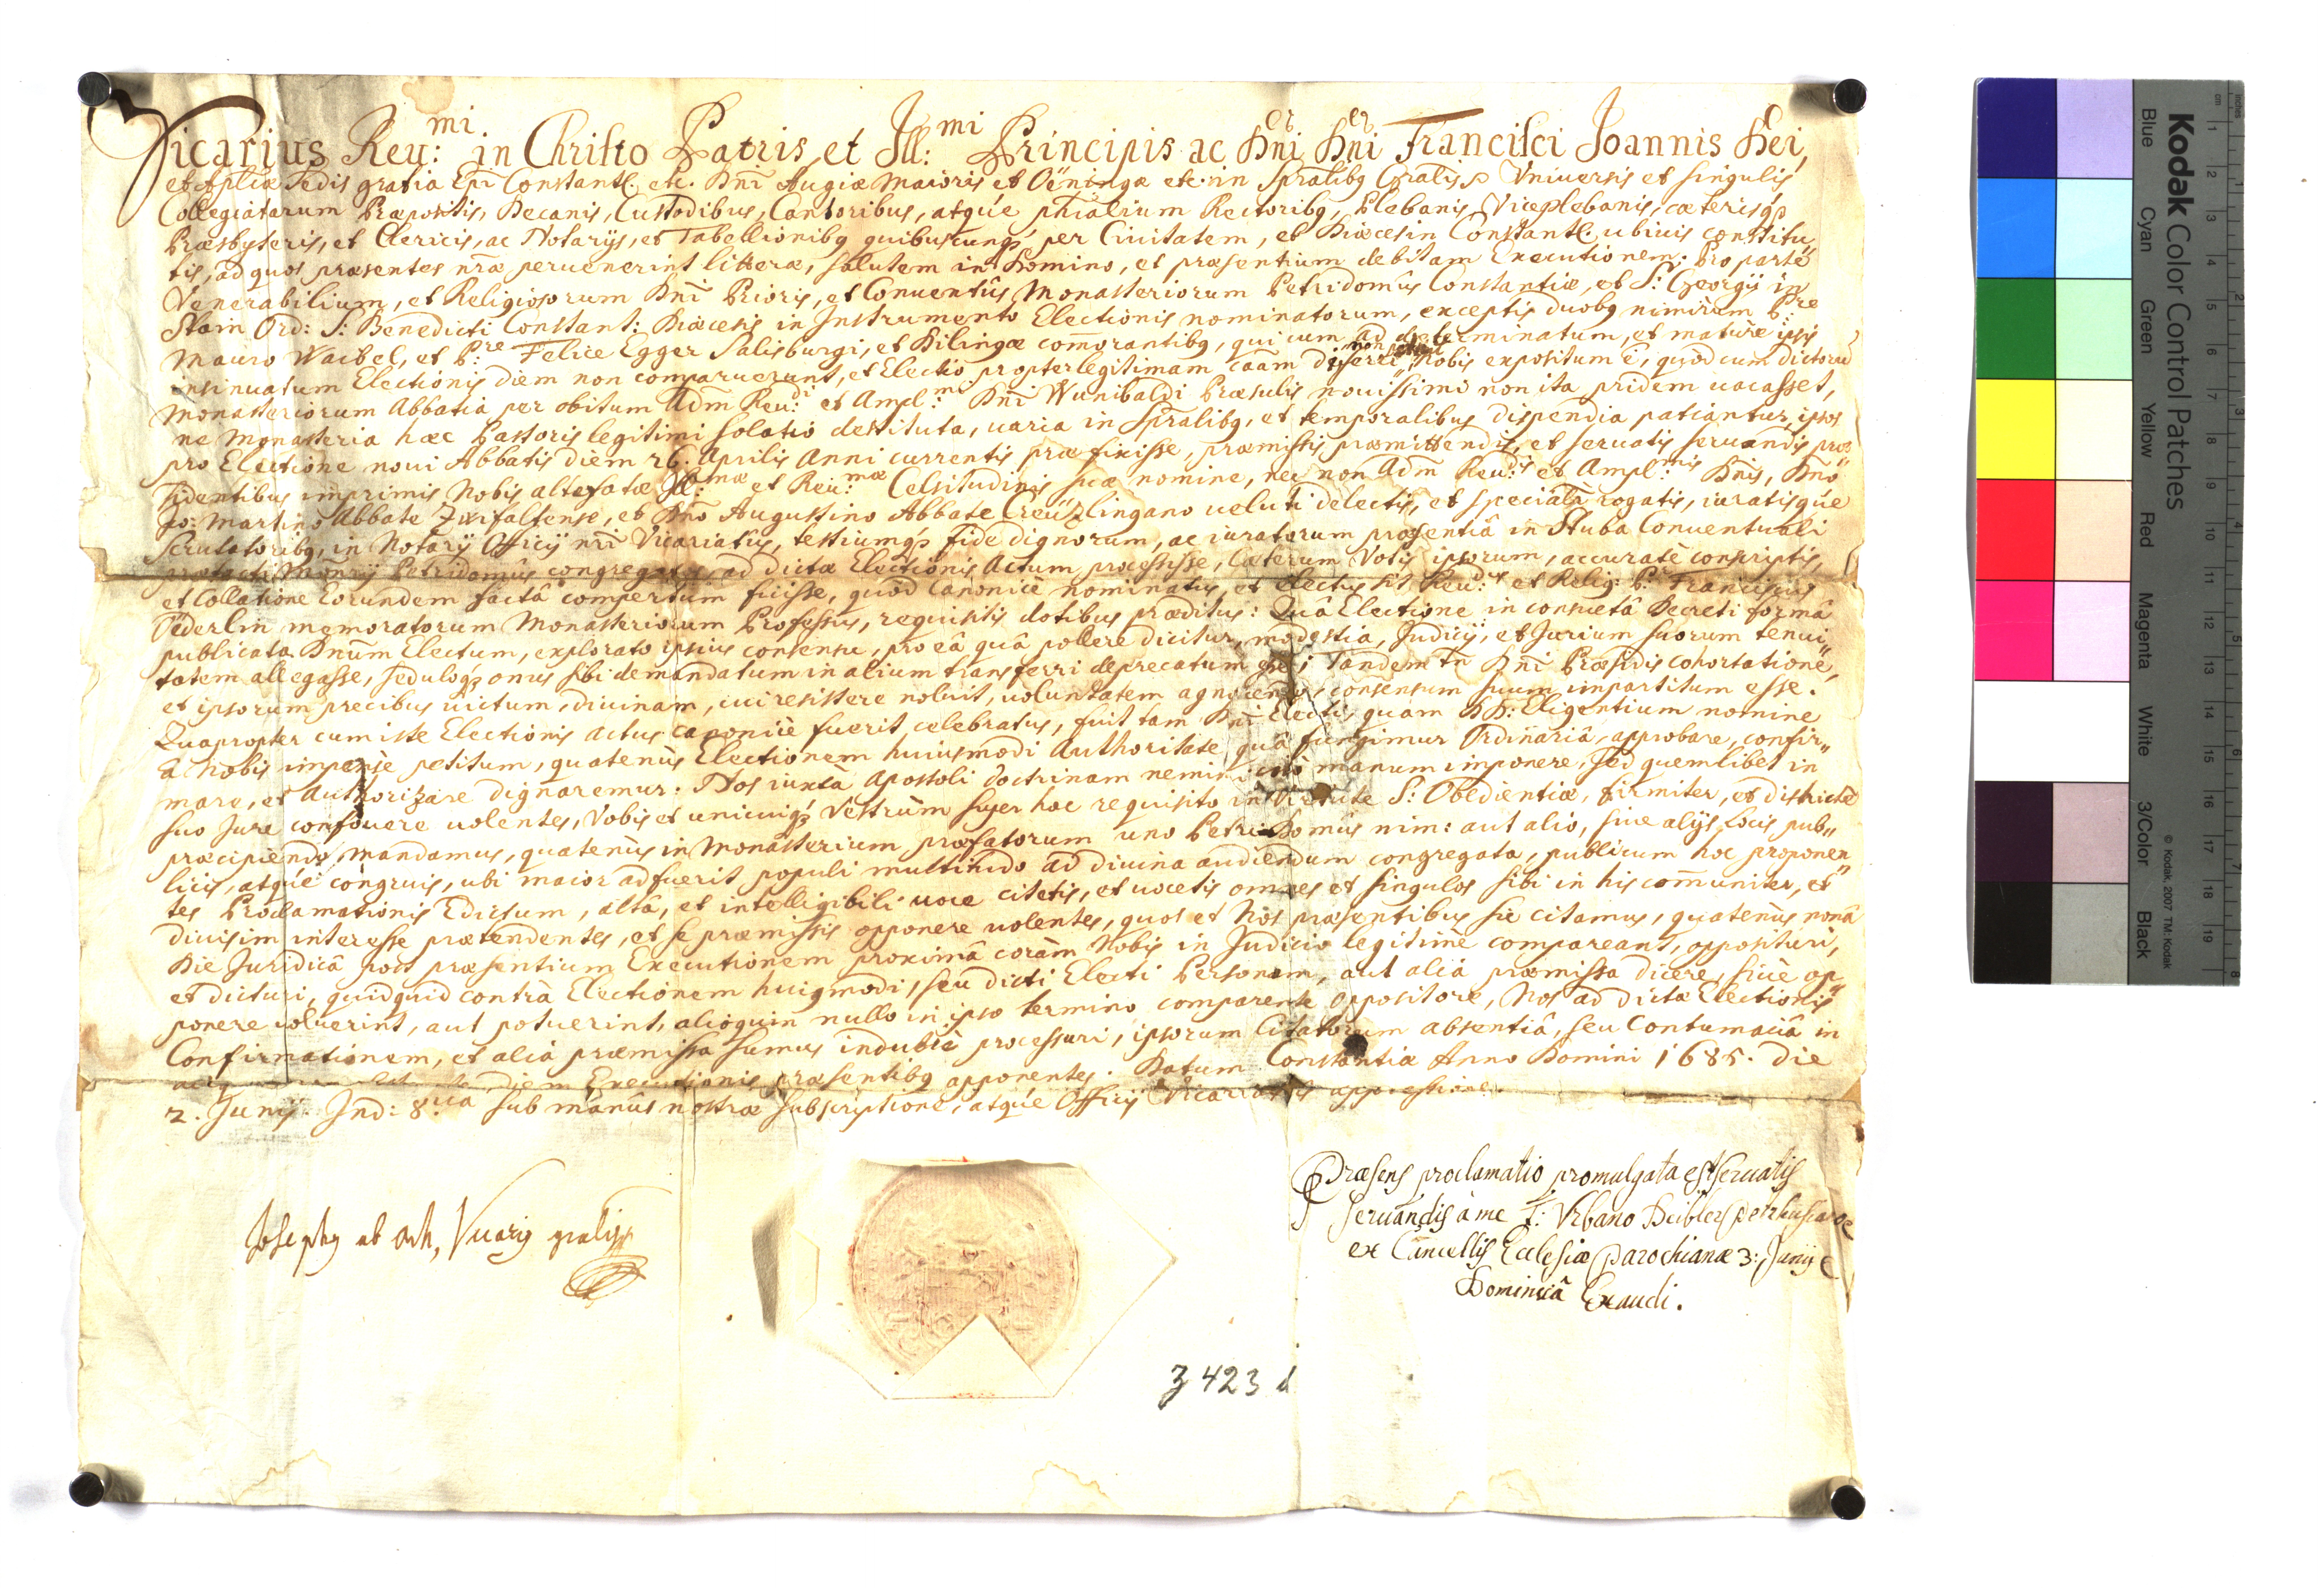 Vicarius Reu:mi in Christo Patris, et Ill:mi Principis ac Dni Dni Francisci Joannis Dei,
et Aplicæ Sedis gratia Epi Constant. etc. Dni Augiæ Maioris et Oëningæ etc. in Spralibg Gralis Vniuersis et singulis
Collegiatarum Præpositis, Decanis, Custodibus, Cantoribus, atque phialium Rectoribg, Plebanis Viceplebanis, cæterisqz
Præsbyteris, et Clericis, ac Notarijs, et Tabellionibg quibuscunqz per Ciuitatem, et Diœcesin Constant. ubiuis constitu,,
tis, ad quos præsentes nræ peruenerint litteræ, salutem in Domino, et præsentium debitam Executionem: Pro parte
Venerabilium, et Religiosorum Dni Prioris, et Conuentûs Monasteriorum Petridomûs Constantiæ, et S: Georgij in
Stain Ord: S: Benedicti Constant: Diœcesis in Instrumento Electionis nominatorum, exceptis duobg nimirum P:re
Mauro Waibel, et P:re Felice Egger Salisburgi, et Dilingæ comorantibg, qui cum ad determinatum, et mature ipsis
insinuatum Electionis diem non comparuerunt, et Electio propter legitimam caam differri non potuit, Nobis expositum ē, quod cum dictorū
Monasteriorum Abbatia per obitum Adm Reu:di et Ampl:mi Dni Wunibaldi Præsulis nouissimi non ita pridem uacasset,
ne Monasteria hæc Pastoris legitimi solatio destituta, uaria in Spralibg, et temporalibus dispendia patiantur, ipsos
pro Electione noui Abbatis diem 26. Aprilis Anni currentis præfixisse, præmissis præmittendis, et seruatis seruandis præ,,
sidentibus imprimis Nobis altefatæ Ill:mæ et Reu:mæ Celsitudinis suæ nomine, nec non Adm Reu:dis et Ampl:mis Dnis, Dno
Jo: Martino Abbate Zwifaltense, et Dno Augustino Abbate Creüzlingano ueluti delectis, et specialr rogatis, iuratisque
Scrutatoribg, in Notarij Officij nri Vicariatûs, testiumqz fide dignorum, ac iuratorum præsentiâ in Stuba Conuentuali
præfati Monrij Petridomûs congregatis, ad dictæ Electionis Actum processisse, Cæterum Votis ipsorum, accuratè conscriptis,
et Collatione Eorundem factâ compertum fuisse, quod canonicè nominatus, et electus sit Reu:dus et Relig: P:r Franciscus
Öderlin memoratorum Monasteriorum Professus, requisitis dotibus præditus: Quâ Electione in consuetâ Decreti formâ
publicata Dnum Electum, explorato ipsius consensu, pro eâ quâ pollere dicitur, modestia, Judicij, et Jurium suorum tenui,,
tatem allegasse, seduloqz onus sibi demandatum in alium transferri deprecatum esse; Tandem tn Dni Præsidis cohortatione,
et ipsorum precibus uictum, diuinam, cui resistere noluit, uoluntatem agnoscendo, consensum suum impartitum esse.
Quapropter cum iste Electionis actus canonicè fuerit celebratus, fuit tam Dni Electi, quam DD: Eligentium nomine
â Nobis impensè petitum, quatenùs Electionem huiusmodi Authoritate, quâ fungimur Ordinariâ, approbare, confir,,
mare, et Authorizare dignaremur: Nos iuxta Apostoli doctrinam nemini citò manum imponere, sed quemlibet in
suo Jure confouere uolentes, Vobis et unicuiqz Vestrûm super hoc requisito in Virtute S: Obedientiæ, firmiter, et districtè
præcipiendo, mandamus, quatenùs in Monasterium præfatorum uno Petri Domûs nim: aut alio, siue alijs Locis pub,,
licis, atque congruis, ubi maior adfuerit populi multitudo ad diuina audiendum congregata, publicum hoc proponen,,
tes Proclamationis Edictum, altâ, et intelligibili uoce citetis, et uocetis omnes et singulos sibi in his comuniter, et
diuisim interesse prætendentes, et se præmissis opponere uolentes, quos et Nos præsentibus sic citamus, quatenùs nonâ
Die Juridicâ post præsentium Executionem proximâ coràm Nobis in Judicio legitimè compareant, opposituri,
et dicturi, quidquid contrà Electionem huigmodi, seu dicti Electi Personam, aut aliâ præmissa dicere, siuè op,,
ponere uoluerint, aut potuerint, alioquin nullo in ipso termino comparente Oppositore, Nos ad dictæ Electionis
Confirmationem, et aliâ præmissa sumus indubiè processuri, ipsorum Citatorum absentiâ, seu Contumaciâ in
diem Executionis præsentibg apponentes. Datum Constantiæ Anno Domini 1685. die
2. Junij. Ind: 8.ua sub manûs nostræ subscriptione, atque Officij Vicariatûs appressione.
Josephg ab Ach, Vicarig gralis
Præsens proclamatio promulgata est seruatis
seruandis à me F: Vrbano Petrhusiano
ex Cancellis Ecclesiæ Parochianæ 3: Junij
Dominicâ Exaudi.
3 423 d
Kodak Color Control Patches
Blue Cyan Green Yellow Red Magenta White 3/Color Black
© Kodak, 2007 TM: Kodak
cm 1 2 3 4 5 6 7 8 9 10 11 12 13 14 15 16 17 18 19
Inches 1 2 3 4 5 6 7 8